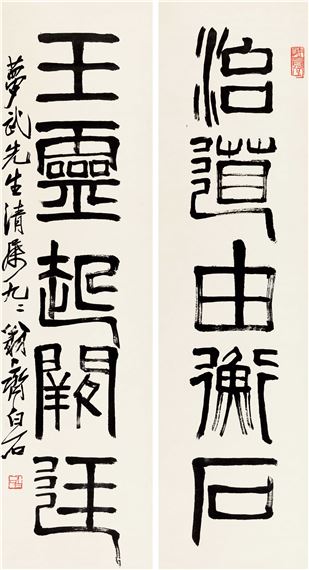 治道由衡石
王靈起闕廷
夢武先生清屬九二翁齊白石